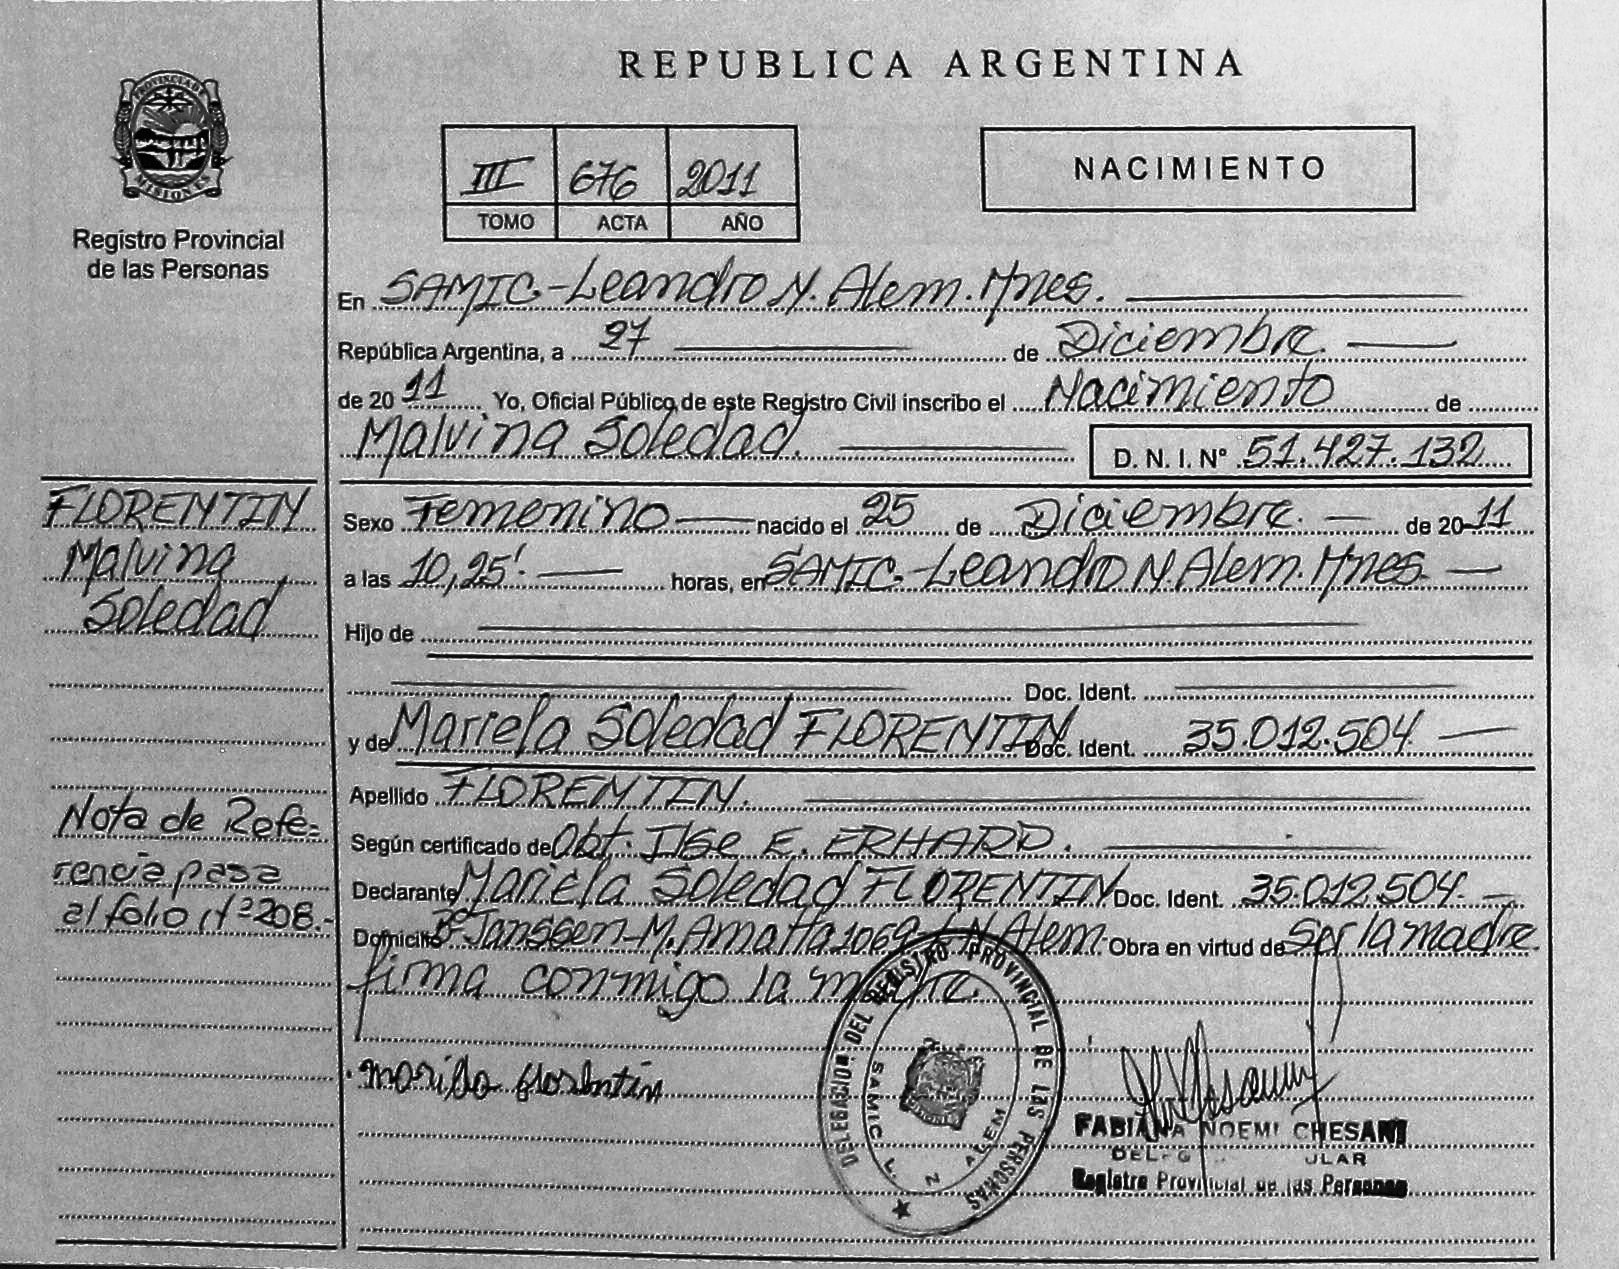 PROVINCIA DE
MISIONES
Registro Provincial
de las Personas
REPUBLICA ARGENTINA
III 676 2011
TOMO ACTA AÑO
NACIMIENTO
En SAMIC.-Leandro N. Alem. Mnes.
República Argentina, a 27 de Diciembre.
de 2011 Yo, Oficial Público de este Registro Civil inscribo el Nacimiento de
Malvina Soledad.
D. N. I. N° 51.427.132
FLORENTIN
Malvina
Soledad
Sexo Femenino nacido el 25 de Diciembre. de 2011
a las 10,25'. horas, en SAMIC.-Leandro N. Alem. Mnes.
Hijo de
Doc. Ident.
y de Mariela Soledad FLORENTIN Doc. Ident. 35.012.504
Apellido FLORENTIN.
Según certificado de Obt. Ilse E. ERHARD.
Declarante Mariela Soledad FLORENTIN Doc. Ident. 35.012.504.
Domicilio B° Janssen-M. Amatta 1069-L.N. Alem. Obra en virtud de Ser la madre.
firma conmigo la madre.
Nota de Refe-
rencia pasa
al folio N° 208.-
Mariela Florentin
DELEGACION DEL REGISTRO PROVINCIAL DE LAS PERSONAS
SAMIC L. N ALEM
FABIANA NOEMI CHESANI
Registro Provincial de las Personas